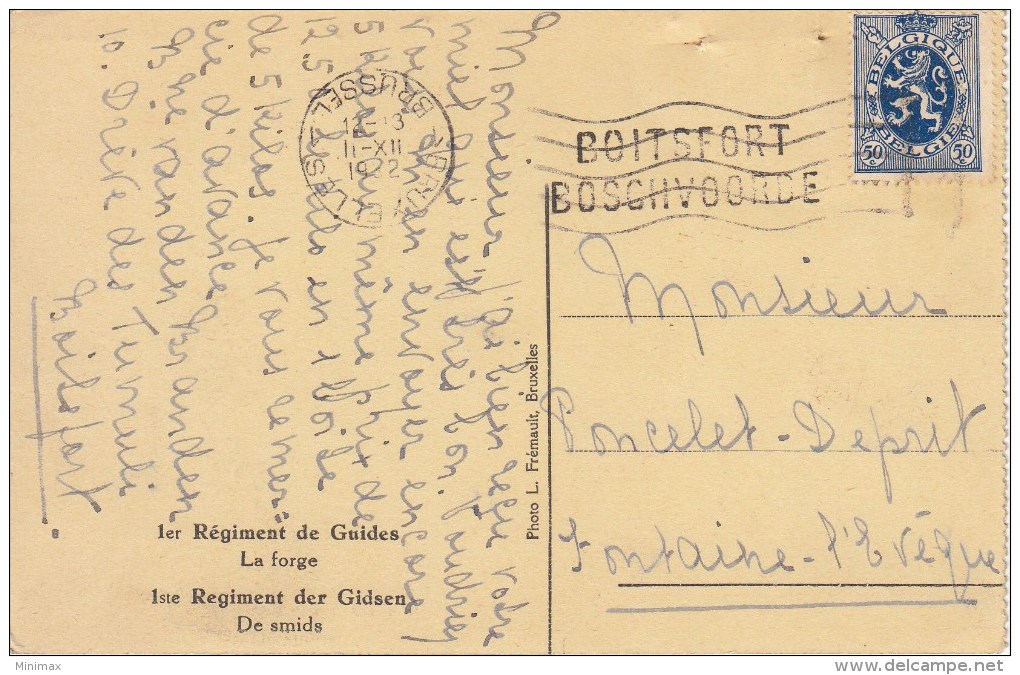 Monsieur, j'ai bien reçu votre
miel qui est très bon. Voudriez
vous m'en envoyer encore
5 kilos au même prix de
12.5 le kilo en 1 boite
de 5 kilos. Je vous remer=
cie d'avance
Mme van den Branden
10. Drève des Tumuli
Boitsfort
BRUXELLES - BRUSSEL
12-13
11-XII
BOITSFORT
BOSCHVOORDE
BELGIQUE
BELGIE
50 c
50 c
Monsieur
Poncelet-Deprit
Fontaine-l'Evêque
Photo L. Frémault, Bruxelles
1er Régiment de Guides
La forge
1ste Regiment der Gidsen
De smids
Minimax
delcampe.net